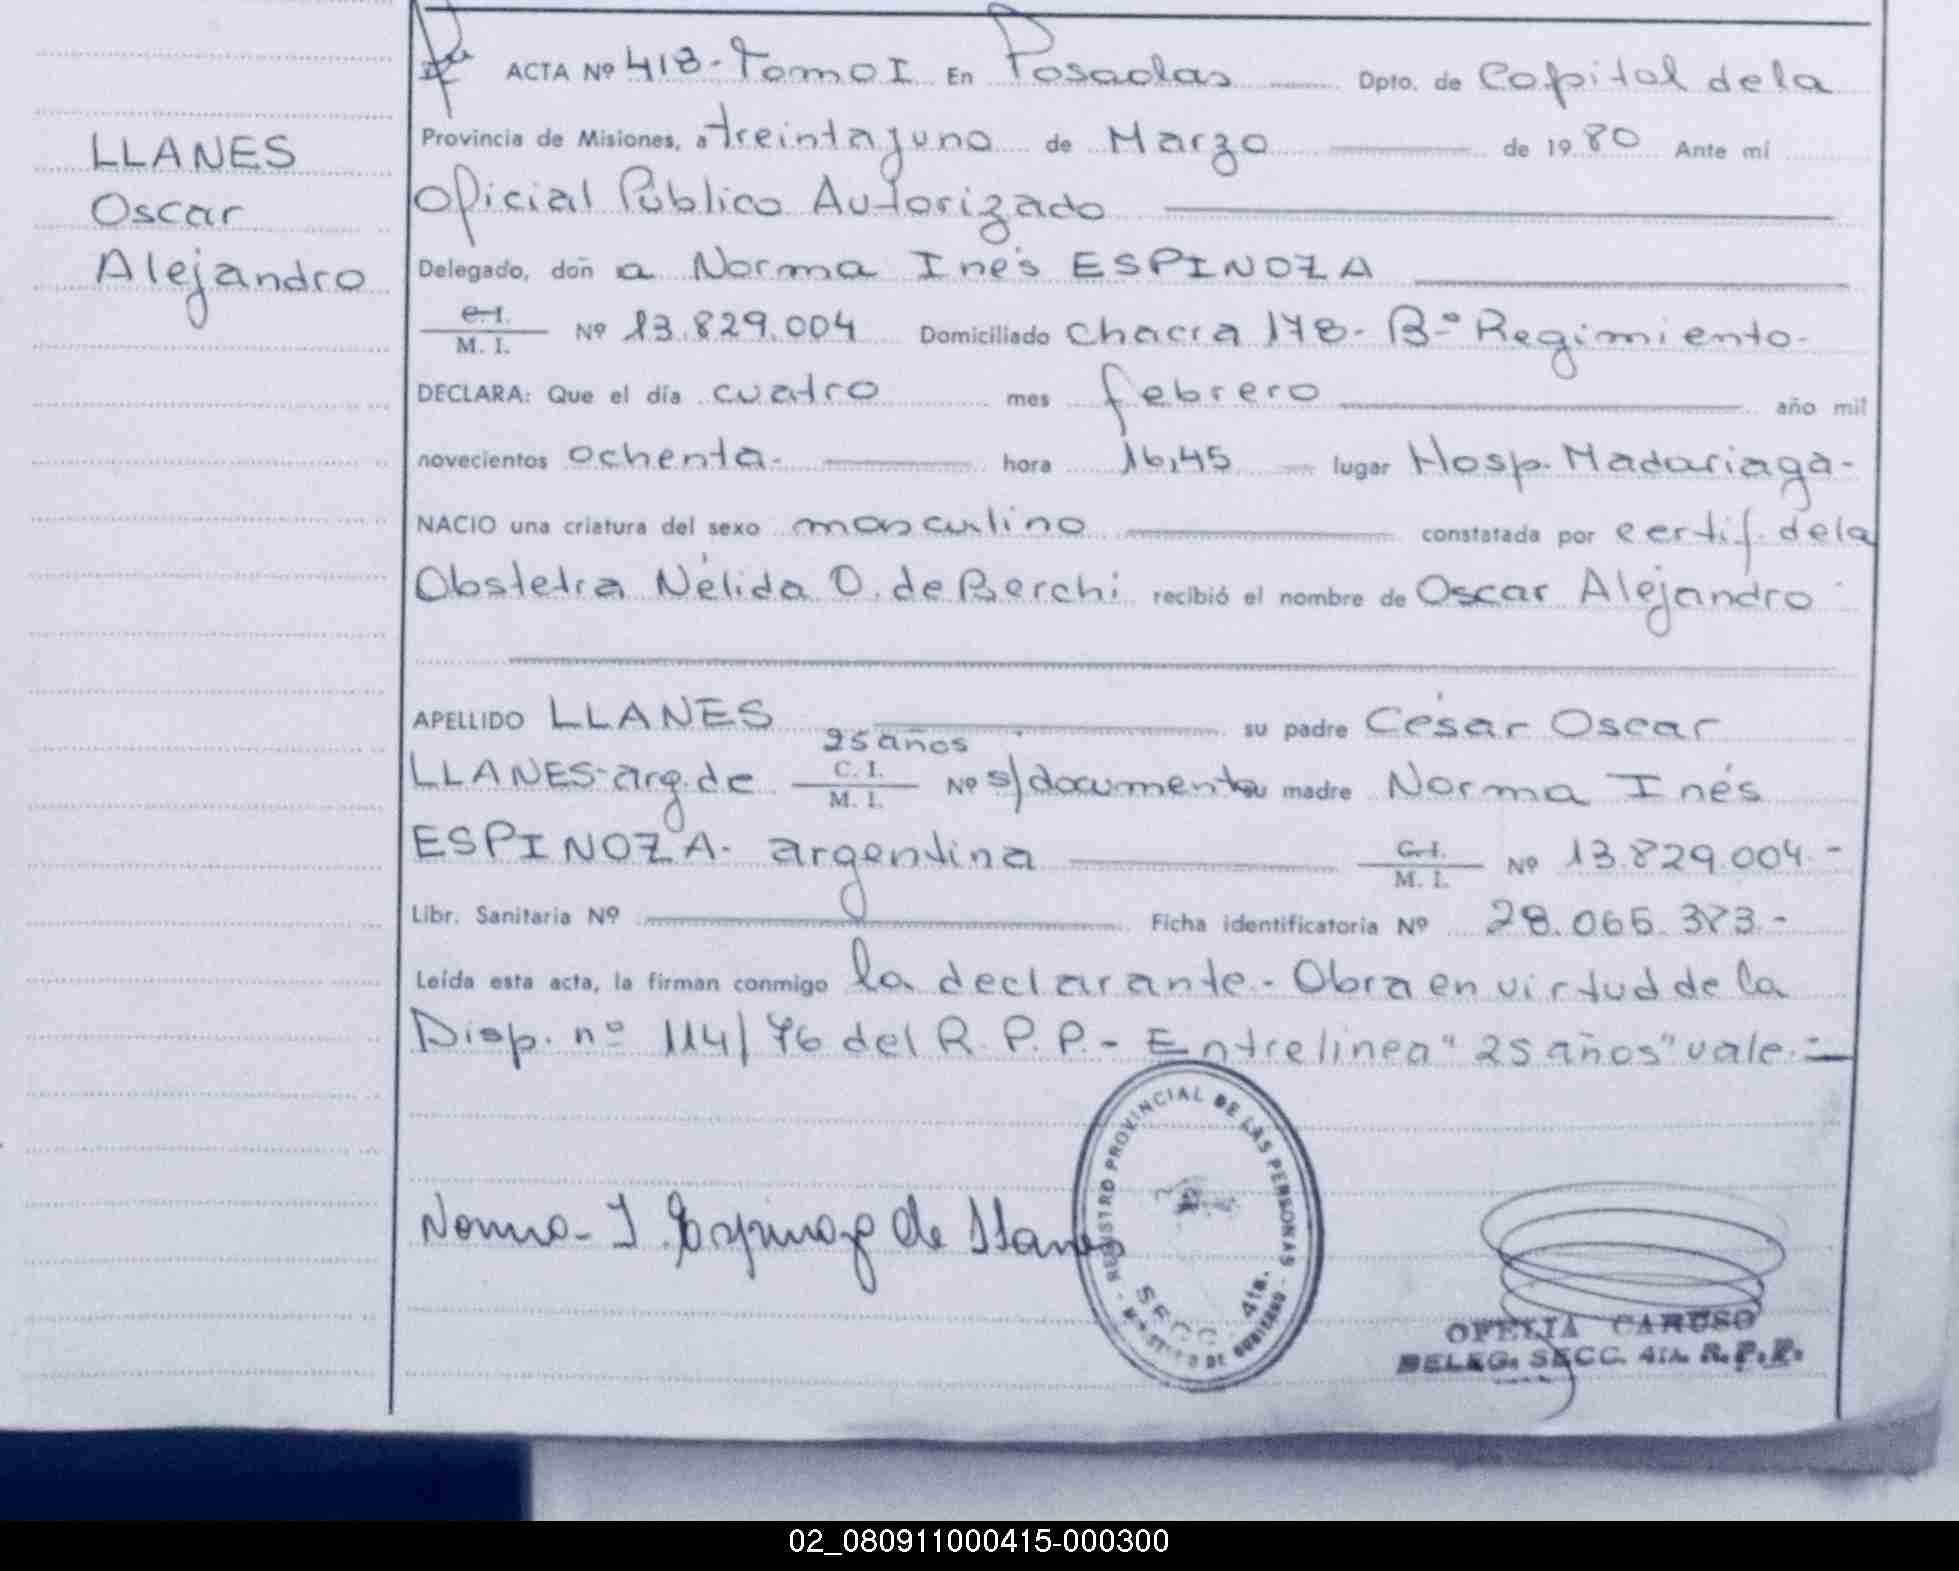 LLANES
Oscar
Alejandro
ACTA Nº 418 - Tomo I En Posadas Dpto. de Capital de la
Provincia de Misiones, a treinta y uno de Marzo de 1980 Ante mí
Oficial Público Autorizado
Delegado, don a Norma Inés ESPINOZA
C.I.
M. I. Nº 13.829.004 Domiciliado Chacra 178 - Bº Regimiento -
DECLARA: Que el día cuatro mes febrero año mil
novecientos ochenta - hora 16,45 lugar Hosp. Madariaga -
NACIO una criatura del sexo masculino constatada por certif. de la
Obstetra Nélida O. de Berchi recibió el nombre de Oscar Alejandro
APELLIDO LLANES su padre César Oscar
25 años
LLANES - arg. de C. I. M. I. Nº s/documento su madre Norma Inés
ESPINOZA - argentina C. I. M. I. Nº 13.829.004 -
Libr. Sanitaria Nº Ficha identificatoria Nº 28.065.373.-
Leída esta acta, la firman conmigo la declarante - Obra en virtud de la
Disp. nº 114/76 del R. P. P. - Entrelinea "25 años" vale. -
Norma - I. Espinoza de Llanes
REGISTRO PROVINCIAL DE LAS PERSONAS
SECC. 4ta.
DE GOBIERNO
OFELIA CARUSO
DELEG. SECC. 4ta. R. P. P.
02_080911000415-000300